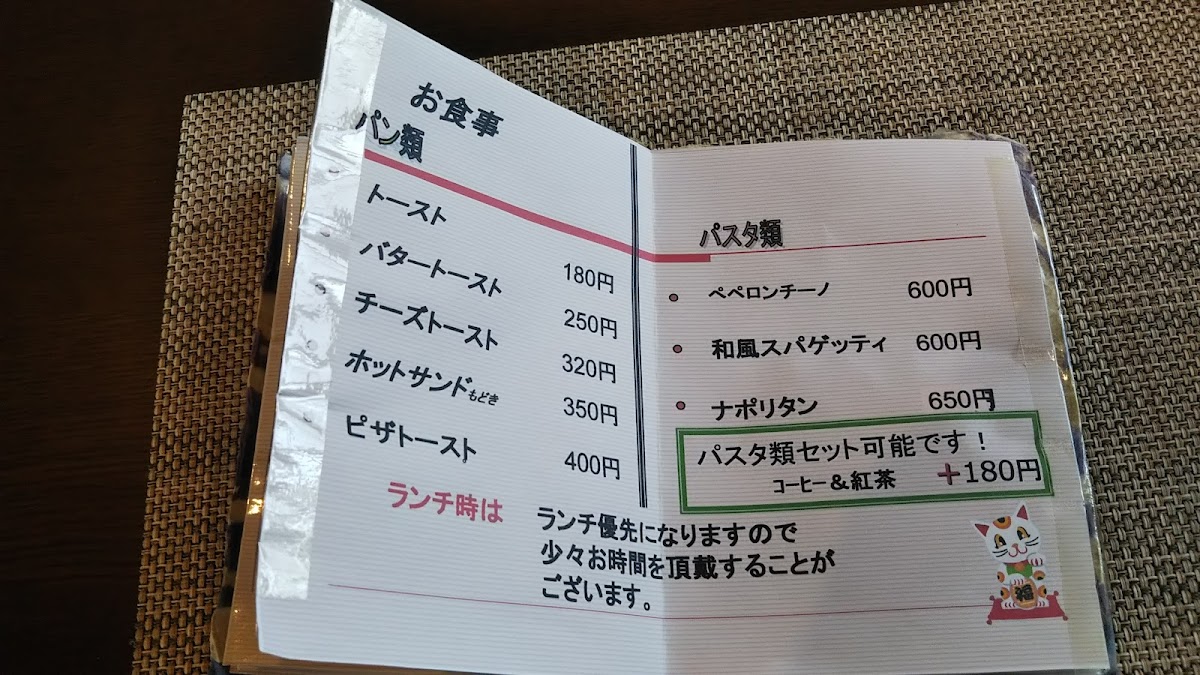 お食事
パン類
トースト 180円
バタートースト 250円
チーズトースト 320円
ホットサンドもどき 350円
ピザトースト 400円
パスタ類
ペペロンチーノ 600円
和風スパゲッティ 600円
ナポリタン 650円
パスタ類セット可能です！
コーヒー＆紅茶 +180円
ランチ時は ランチ優先になりますので
少々お時間を頂戴することが
ございます。
福